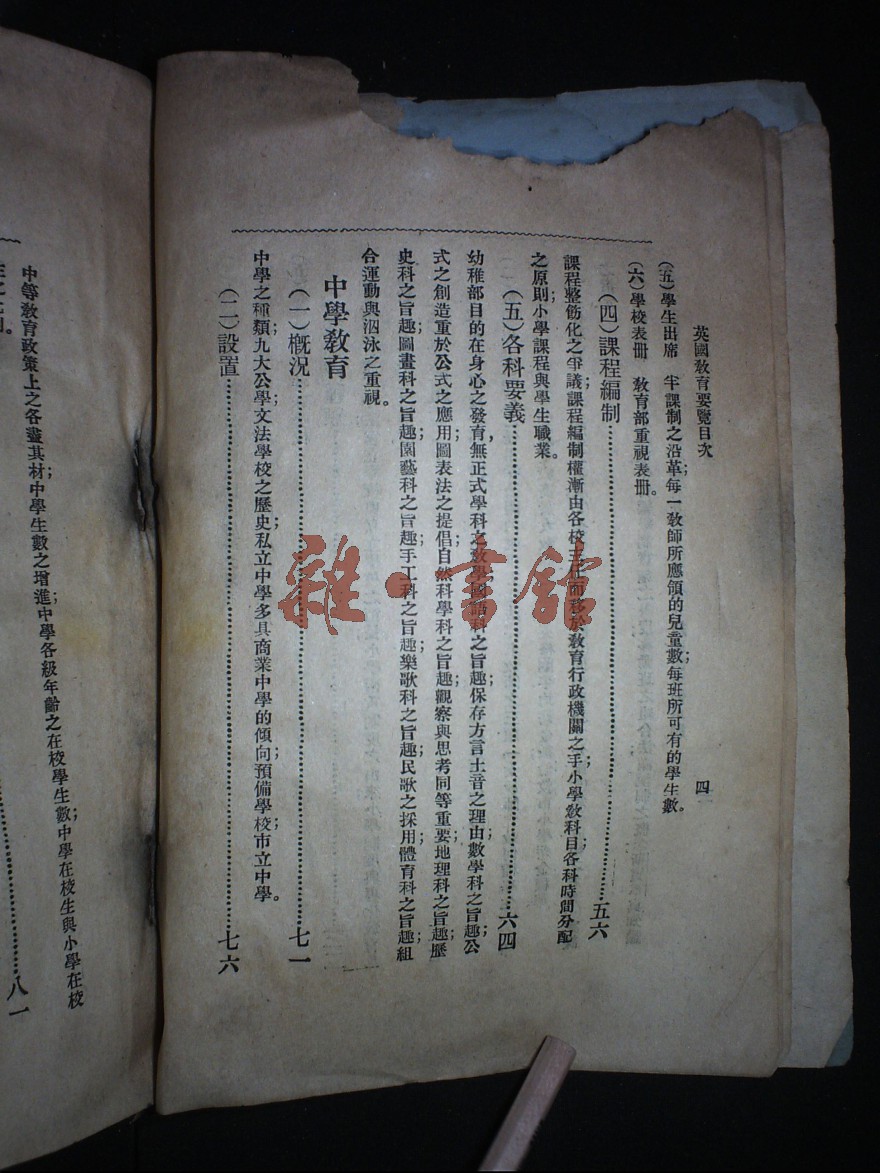 英國敎育要覽目次
四
(五)學生出席　半課制之沿革;每一敎師所應領的兒童數;每班所可有的學生數。
(六)學校表册　敎育部重視表册。
(四)課程編制……五六
課程整飭化之爭議;課程編制權漸由各校主任而移於敎育行政機關之手;小學敎科目各科時間分配
之原則;小學課程與學生職業。
(五)各科要義……六四
幼稚部目的在身心之發育,無正式學科之敎學;國語科之旨趣;保存方言土音之理由;數學科之旨趣;公
式之創造重於公式之應用;圖表法之提倡;自然科學科之旨趣;觀察與思考同等重要;地理科之旨趣;歷
史科之旨趣;圖畫科之旨趣;園藝科之旨趣;手工科之旨趣;樂歌科之旨趣;民歌之採用;體育科之旨趣;組
合運動與泅泳之重視。
中學敎育
(一)槪況……七一
中學之種類;九大公學;文法學校之歷史;私立中學多具商業中學的傾向;預備學校;市立中學。
(二)設置……七六
中等敎育政策上之各盡其材;中學生數之增進;中學各級年齡之在校學生數;中學在校生與小學在校
八一
雜·書館